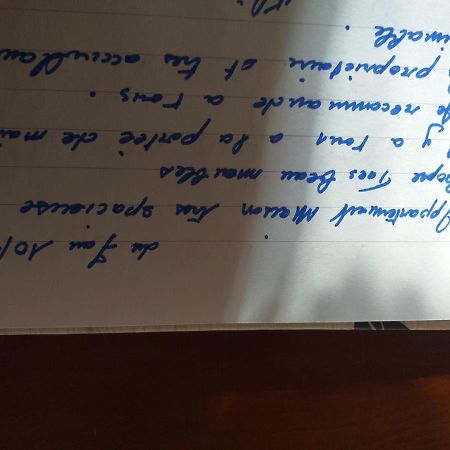 du Jau 10/
Appartement Maison tres spacieuse
Tres beau meubles
y a tous a la portée de mai
Je recommande a tous.
propriétaire et très accueillan
imable.